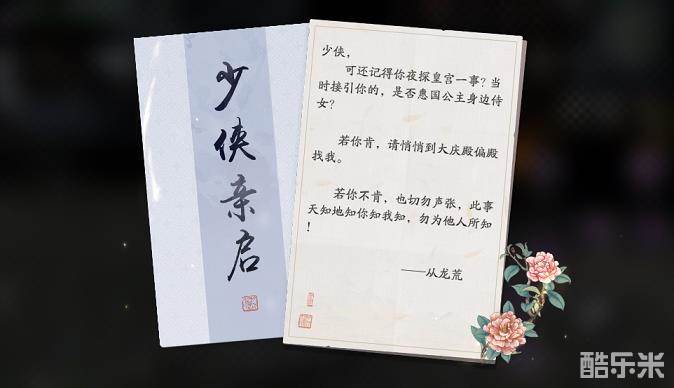 少侠亲启
少侠，
可还记得你夜探皇宫一事？当
时接引你的，是否惠国公主身边侍
女？
若你肯，请悄悄到大庆殿偏殿
找我。
若你不肯，也切勿声张，此事
天知地知你知我知，勿为他人所知
！
——从龙荒
酷乐米